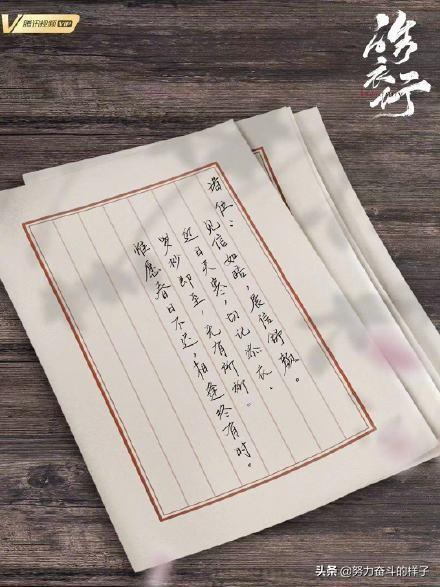 腾讯视频 VIP
皓衣行
诸位：
见信如晤，展信舒颜。
近日天寒，切记添衣，
岁杪即至，先有所祈。
惟愿春日不远，相逢终有时。
头条 @努力奋斗的样子